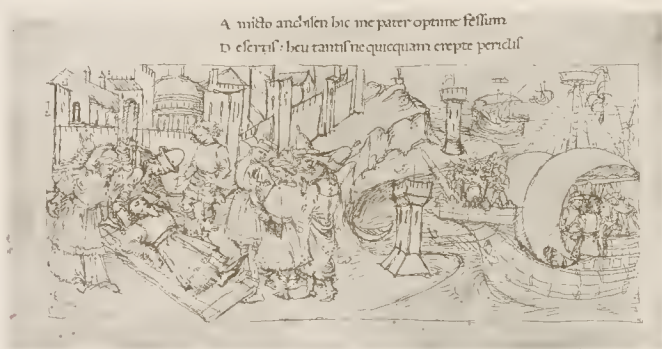 A mitto anchisen hic me pater optime fessum
D eseris : heu tantis ne quicquam erepte periclis